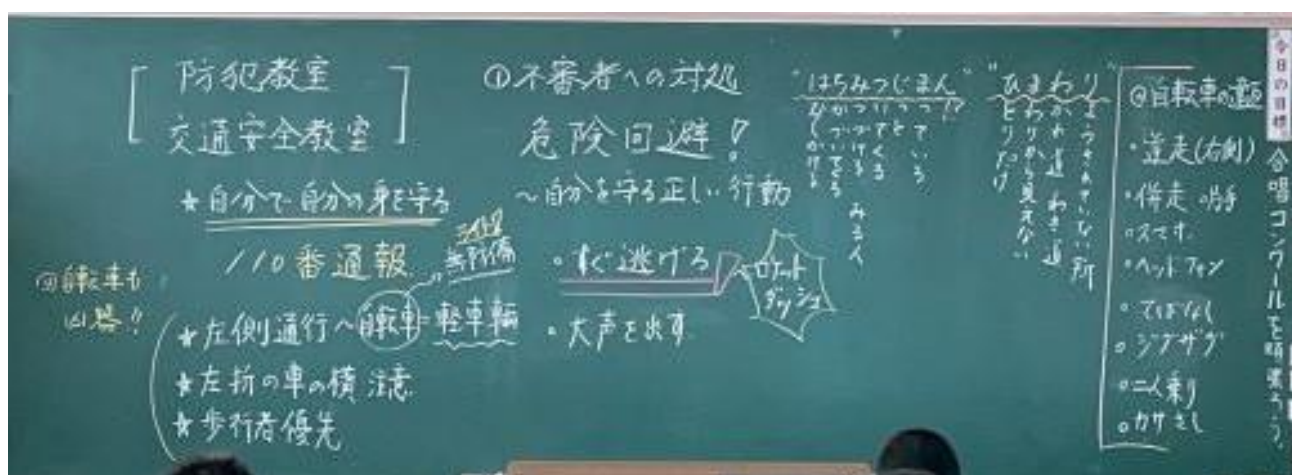 防犯教室
交通安全教室
★自分で自分の身を守る
110番通報
自転車も
凶器!!
★左側通行〜自転車=軽車輌
無防備
★左折の車の横注意
★歩行者優先
①不審者への対処
危険回避!
〜自分を守る正しい行動
・すぐ逃げろ
ロケット
ダッシュ
・大声を出す
"はちみつじまん"
はなしかける
ちかづいてくる
みつめつづける
ついてくる
じっと
まっている
みる人
"ひまわり"
ひとりだけ
まわりから見えない
わかれ道 わき道
りようされていない所
②自転車の
・逆走(右側)
・併走
・スマホ
・ヘッドフォン
・てばなし
・ジグザグ
・二人乗り
・カサさし
今日の目標
合唱コンクールを頑張ろう。